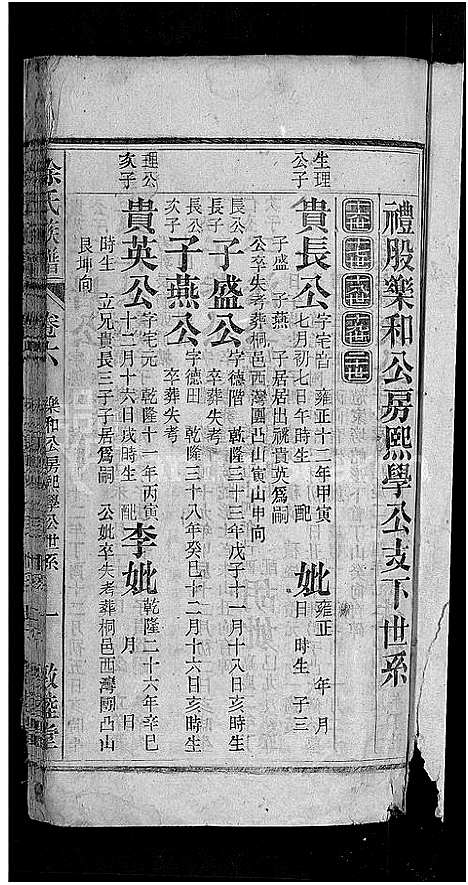 禮股樂和公房熙學公支下世系
十六世 十七世 十八世 十九世 二十世
生理公子
貴長公 字宅首 雍正十二年甲寅七月初七日午時生 配 妣 雍正 年 月 日 時生 子三
子盛 子燕 子居居出祧貴英爲嗣
公卒失考葬桐邑西灣團凸山寅山申向
長公長子
子盛公 字德階 乾隆三十三年戊子十一月十八日亥時生
卒葬失考
長公次子
子燕公 字德田 乾隆三十八年癸巳十二月十六日亥時生
卒葬失考
理公次子
貴英公 字宅元 乾隆十一年丙寅十二月十六日戌時生 配 李妣 乾隆二十六年辛巳 月 日
時生 立兄貴長三子子居爲嗣 公妣卒失考葬桐邑西灣團凸山
艮坤向
徐氏族譜 卷之六 樂和公房熙學公世系 一 敦睦堂